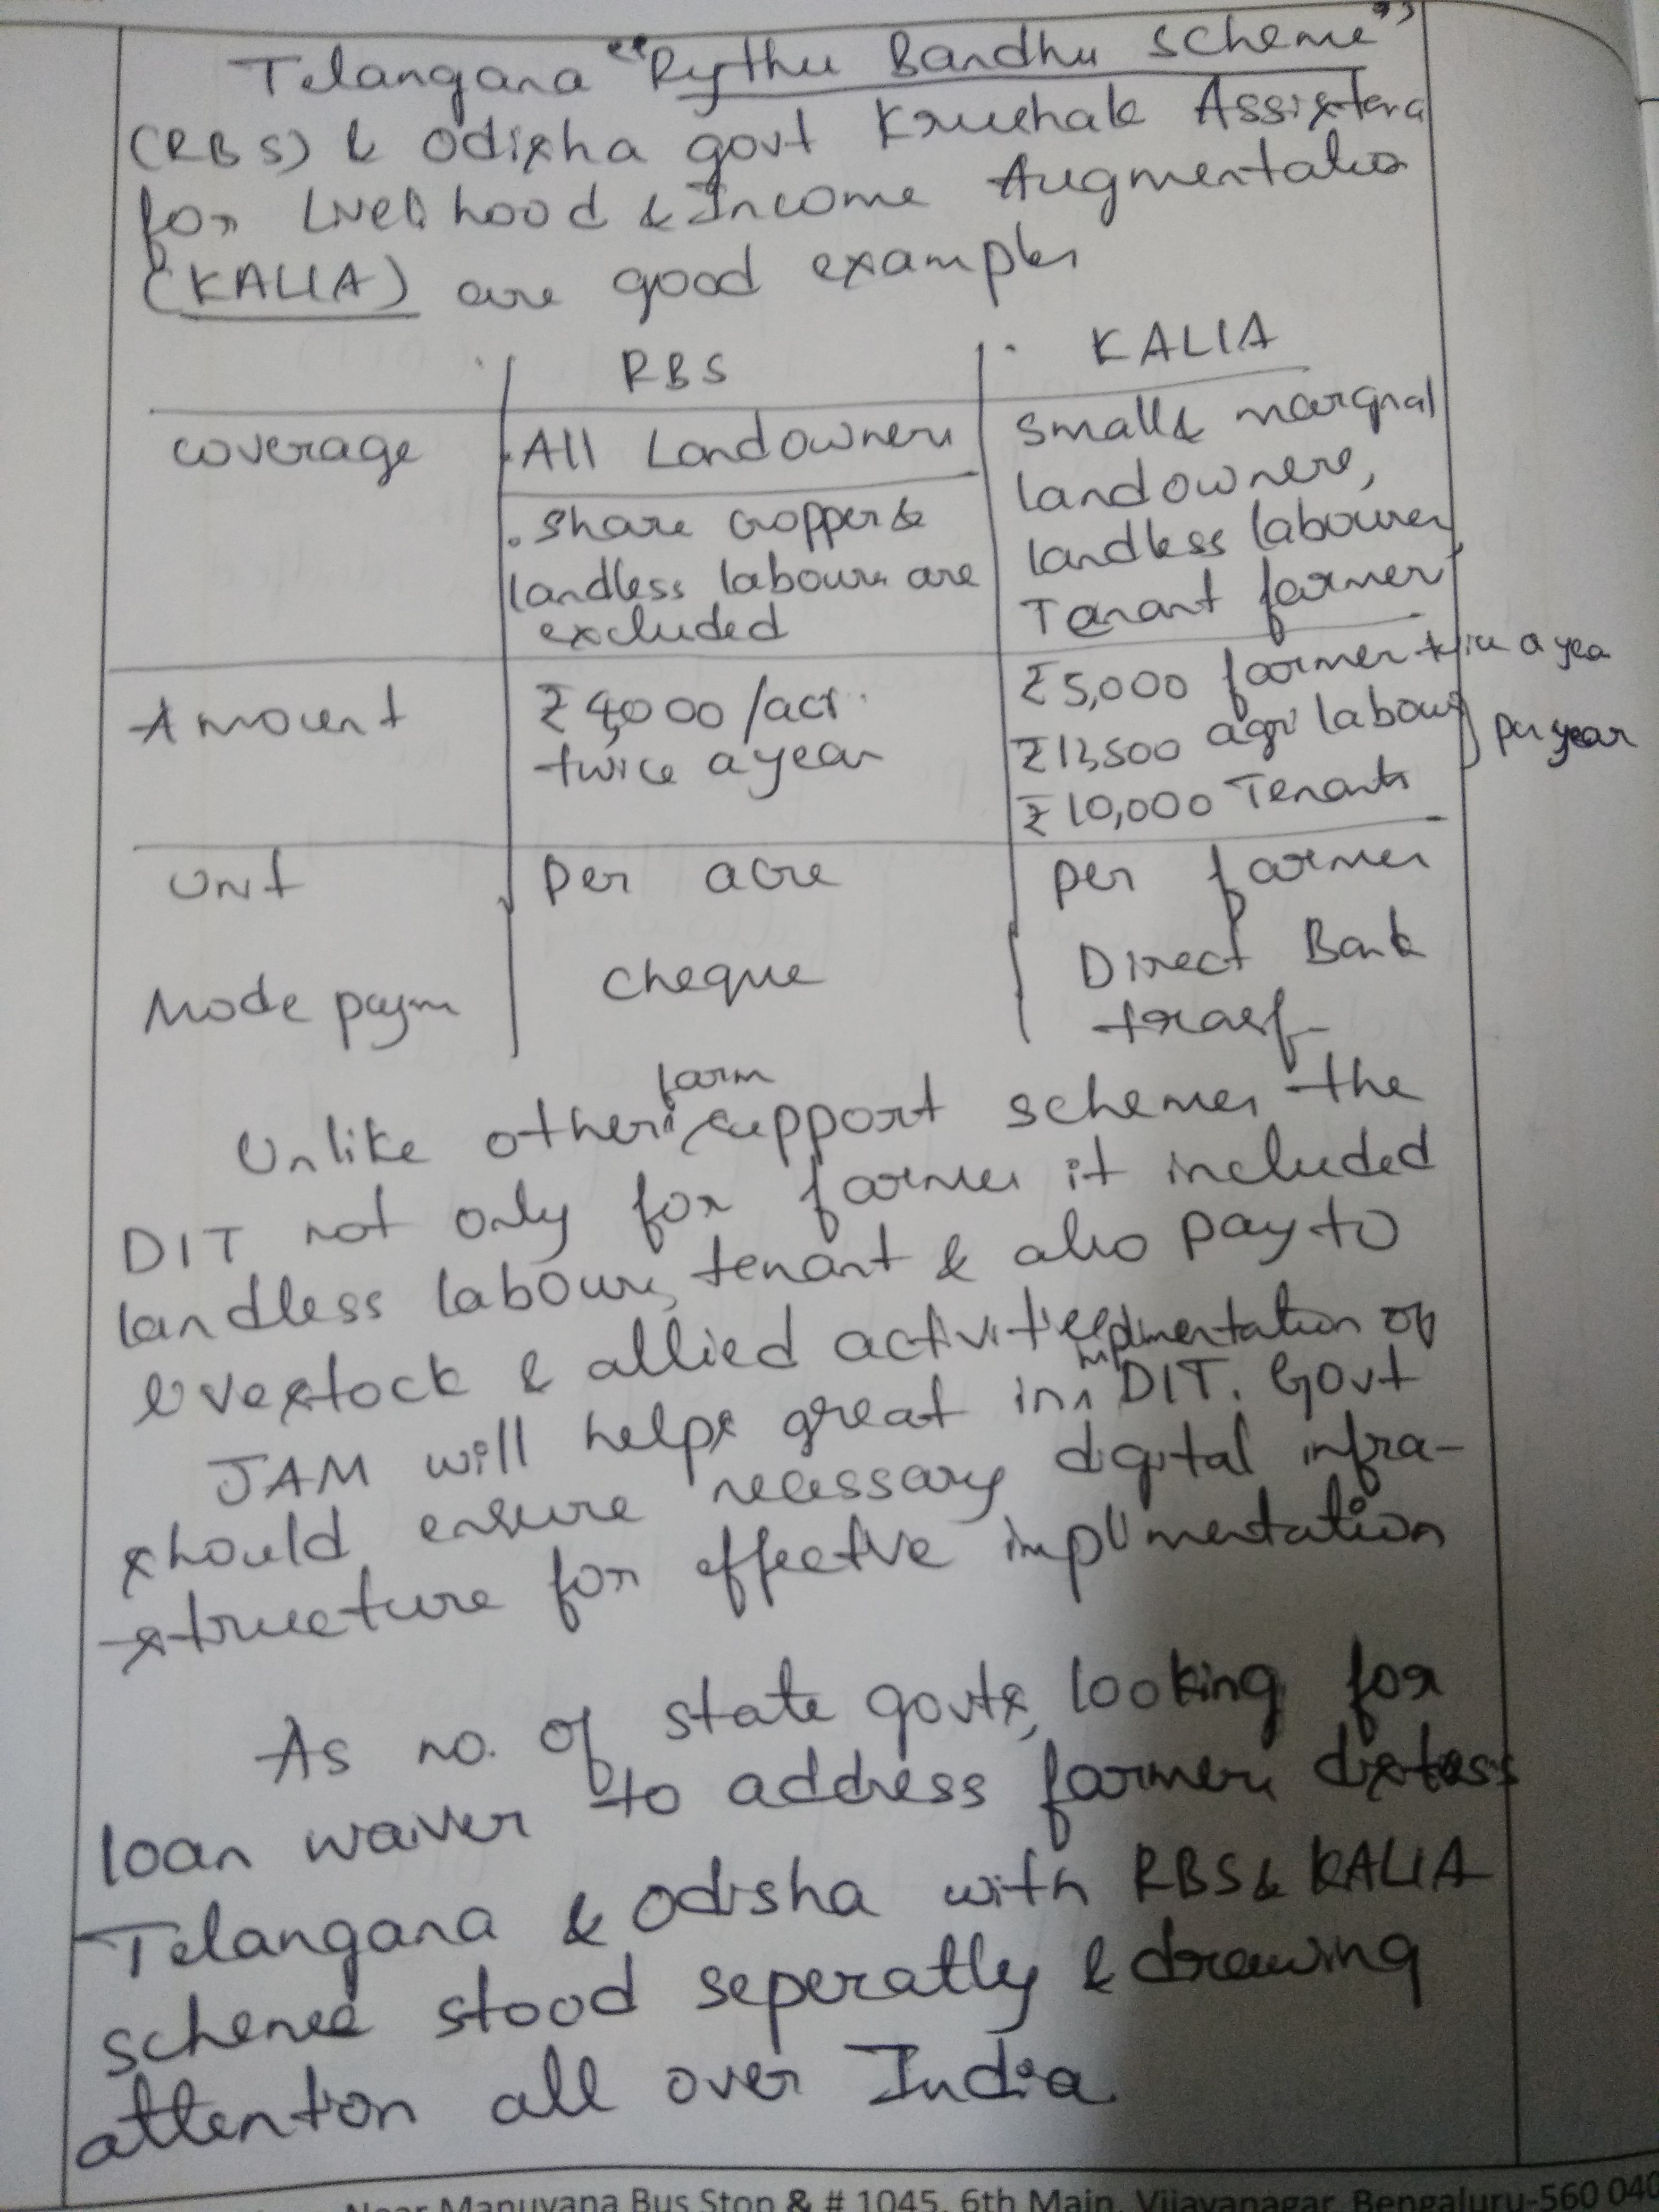 Telangana "Rythu Bandhu scheme"
(RBS) & Odisha govt Krushak Assistanc
for Livelihood & Income Augmentatio
(KALIA) are good examples
RBS KALIA
coverage
. All Landowners
. share cropper &
landless labours are
excluded
small & marginal
landowners,
landless labourer
Tenant farmer
Amount
₹4,000/acr
twice a year
₹5,000 farmer twice a yea
₹12,500 agri labour
₹10,000 Tenants
per year
Unit per acre per farmer
Mode paym cheque Direct Bank
transf
Unlike others farm support schemes the
DIT not only for farmer it included
landless labours, tenant & also pay to
livestock & allied activities
JAM will helps great in implmentation of DIT. Govt
should ensure necessary digital infra-
-structure for effective implimentation
As no. of state govts, looking for
loan waiver to address farmers distress
Telangana & Odisha with RBS & KALIA
scheme stood seperatly & drawing
attention all over India
Near Manuvana Bus Stop & # 1045, 6th Main, Vijayanagar, Bengaluru-560 040